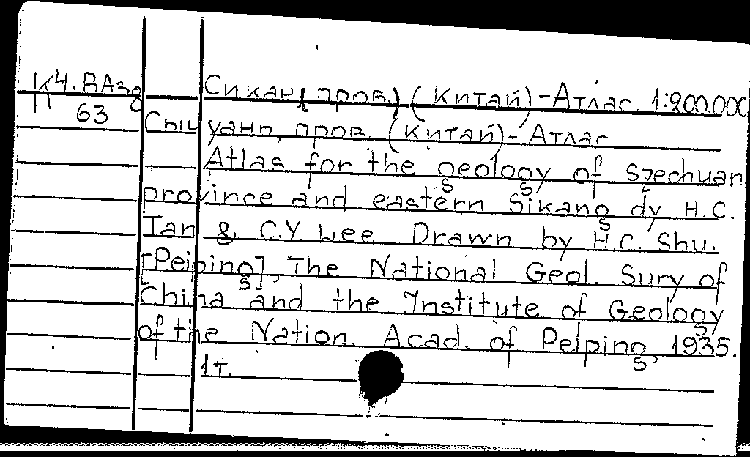 К4.ВАзд Сикан, пров. (Китай)-Атлас. 1:200.000
63 Сычуань, пров. (Китай)-Атлас
Atlas for the geology of Szechuan
province and eastern Sikang dy H.C.
Tan & C.Y Lee Drawn by H.C. Shu.
[Peiping], The National Geol. Surv of
China and the Institute of Geology
of the Nation. Acad. of Pelping, 1935.
1т.